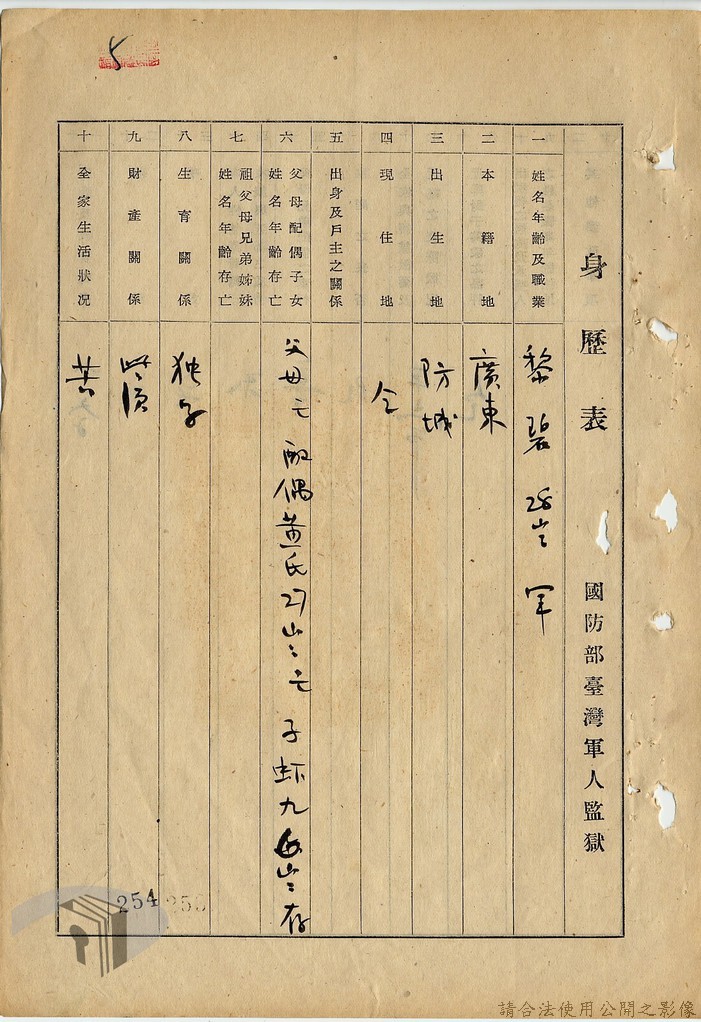 5
身歷表 國防部臺灣軍人監獄
一 姓名年齡及職業 黎碧 28岁 军
二 本籍地 廣東
三 出生地 防城
四 現住地 仝
五 出身及戶主之關係
六 父母配偶子女姓名年齡存亡 父母亡 配偶黄氏27岁亡 子虾九 岁存
七 祖父母兄弟姊妹姓名年齡存亡
八 生育關係 独子
九 財產關係
十 全家生活狀況 苦
254
請合法使用公開之影像